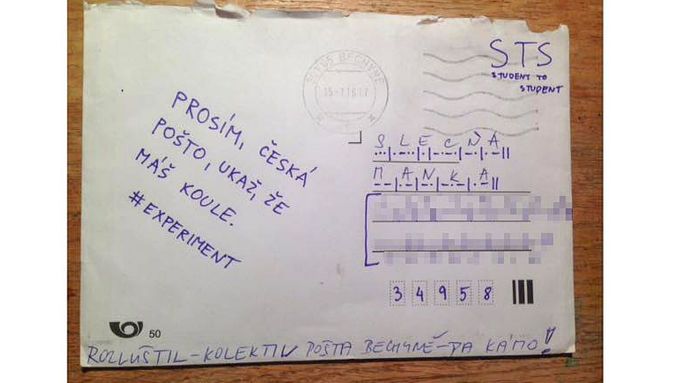 BECHYNĚ
STS
STUDENT TO
STUDENT
PROSÍM, ČESKÁ
POŠTO, UKAŽ, ŽE
MÁŠ KOULE.
#EXPERIMENT
SLEČNA
MANKA
34958
50
ROZLUŠTIL - KOLEKTIV POŠTA BECHYNĚ - PA KÁMO!